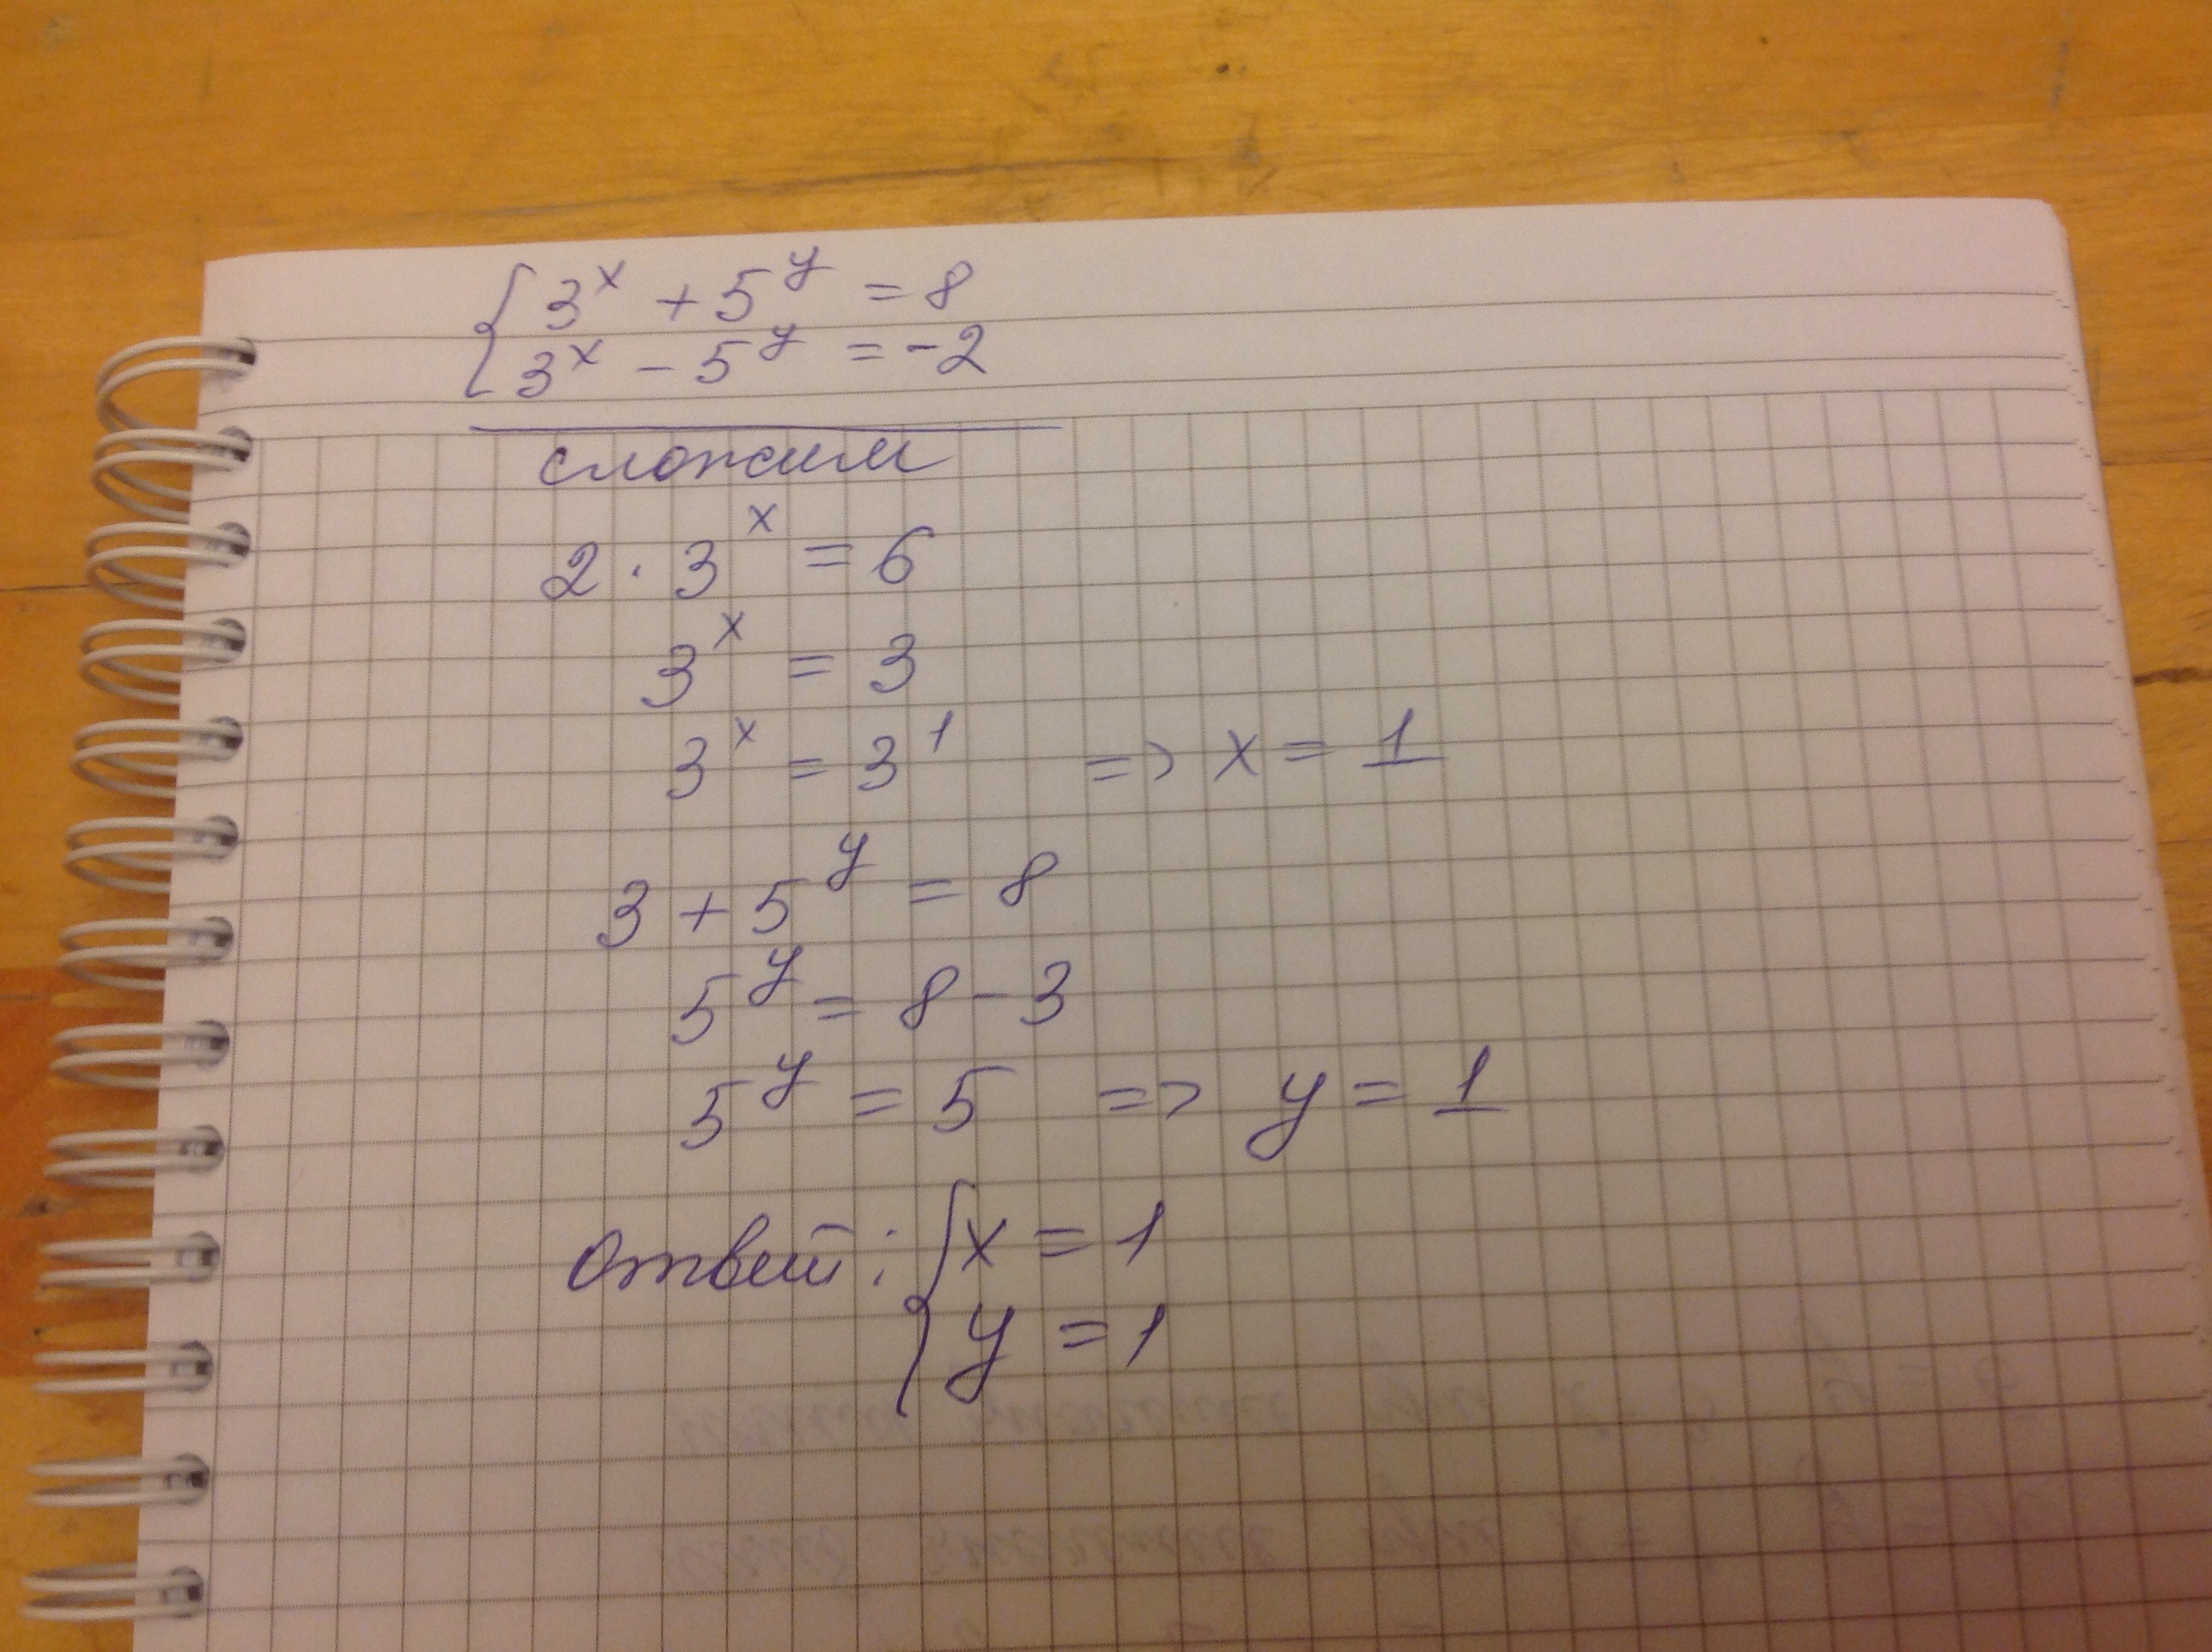 { 3^x + 5^y = 8
3^x - 5^y = -2
сложим
2 · 3^x = 6
3^x = 3
3^x = 3^1 => x = 1
3 + 5^y = 8
5^y = 8 - 3
5^y = 5 => y = 1
Ответ: { x = 1
y = 1